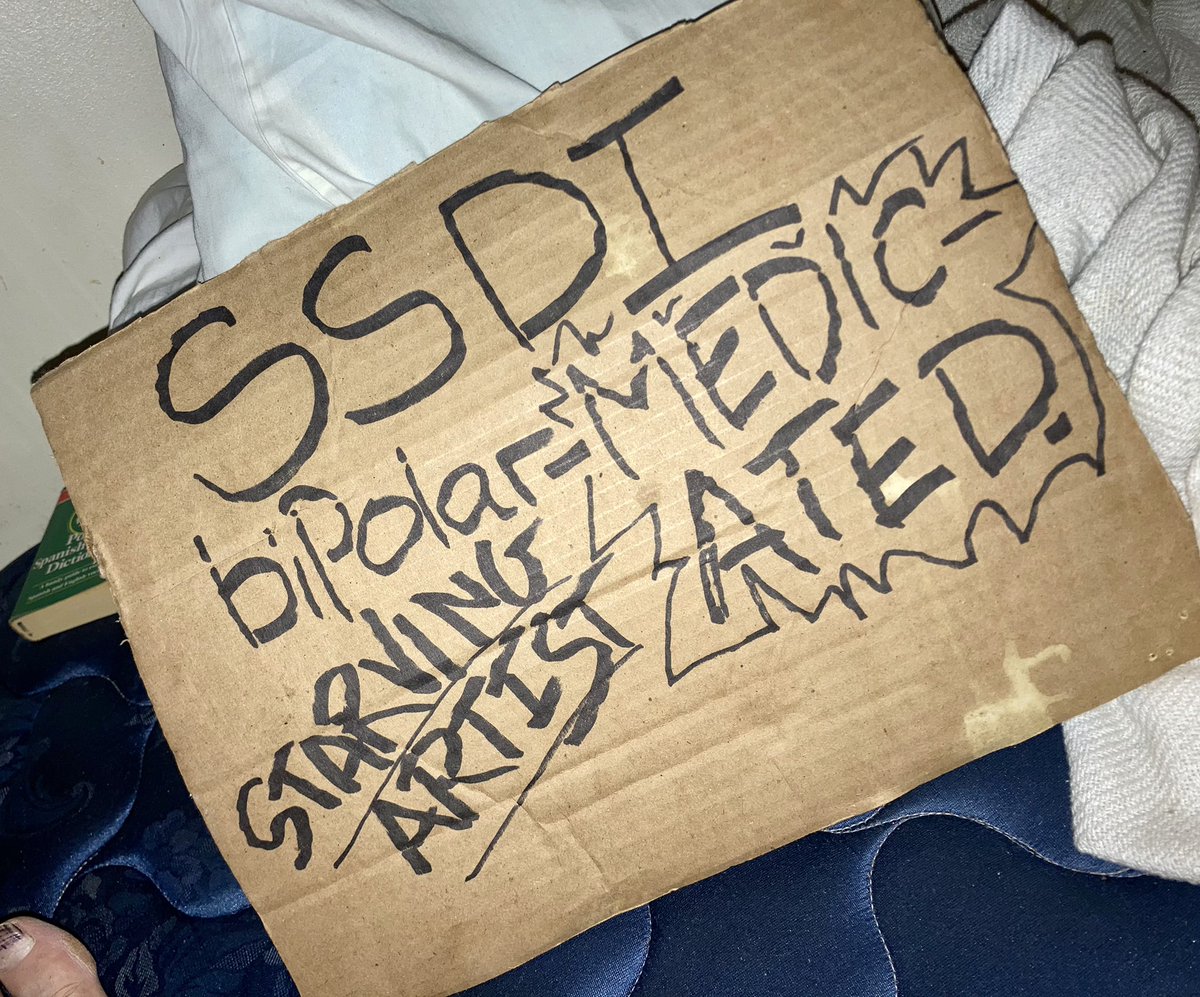 SSDI
biPolar-MEDIC-
ATED.
STARVING
ARTIST
Spanish